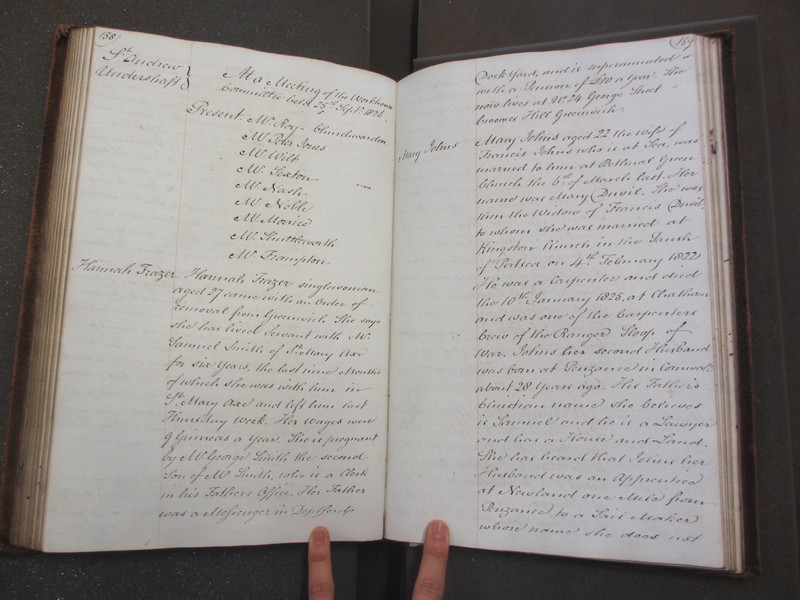 158
St Andrew
Undershaft
At a Meeting of the Workhouse
Committee held 25th Septr. 1826
Present Mr Roy Churchwarden
Mr Peter Jones
Mr Wilt
Mr Sexton
Mr Nash
Mr Noble
Mr
Mr Shuttleworth
Mr Frampton
Hannah Frazer Hannah Frazer singlewoman
aged 27 came with an Order of
removal from Greenwich She says
she has lived Servant with Mr
Samuel Smith of St Mary Axe
for six Years, the last nine Months
of which she was with him in
St Mary Axe and left him last
Thursday Week. Her Wages were
9 Guineas a Year. She is pregnant
by Mr George Smith the second
Son of Mr Smith, who is a Clerk
in his Fathers Office. Her Father
was a Messenger in Deptford
159
Dock Yard, and is superannuated
with a Pension of £10 a Year. He
now lives at No 24 George Street
Hill Greenwich
Mary Johns Mary Johns aged 22 the wife of
Francis Johns who is at Sea, was
married to him at Bethnal Green
Church the 6th of March last. Her
name was Mary Duvil. She was
then the Widow of Francis Duvil
to whom she was married at
Kingston Church in the Parish
of Portsea on 4th February 1822
He was a Carpenter and died
the 10th January 1825, at Chatham
and was one of the Carpenters
Crew of the Ranger Sloop of
War. Johns her second Husband
was born at Penzance in Cornwall
about 28 Years ago. His Father's
Christian name she believes
is Samuel and he is a Lawyer
and has a House and Land.
She has heard that Johns her
Husband was an Apprentice
at Newland one Mile from
Penzance to a Sail Maker
whose name she does not